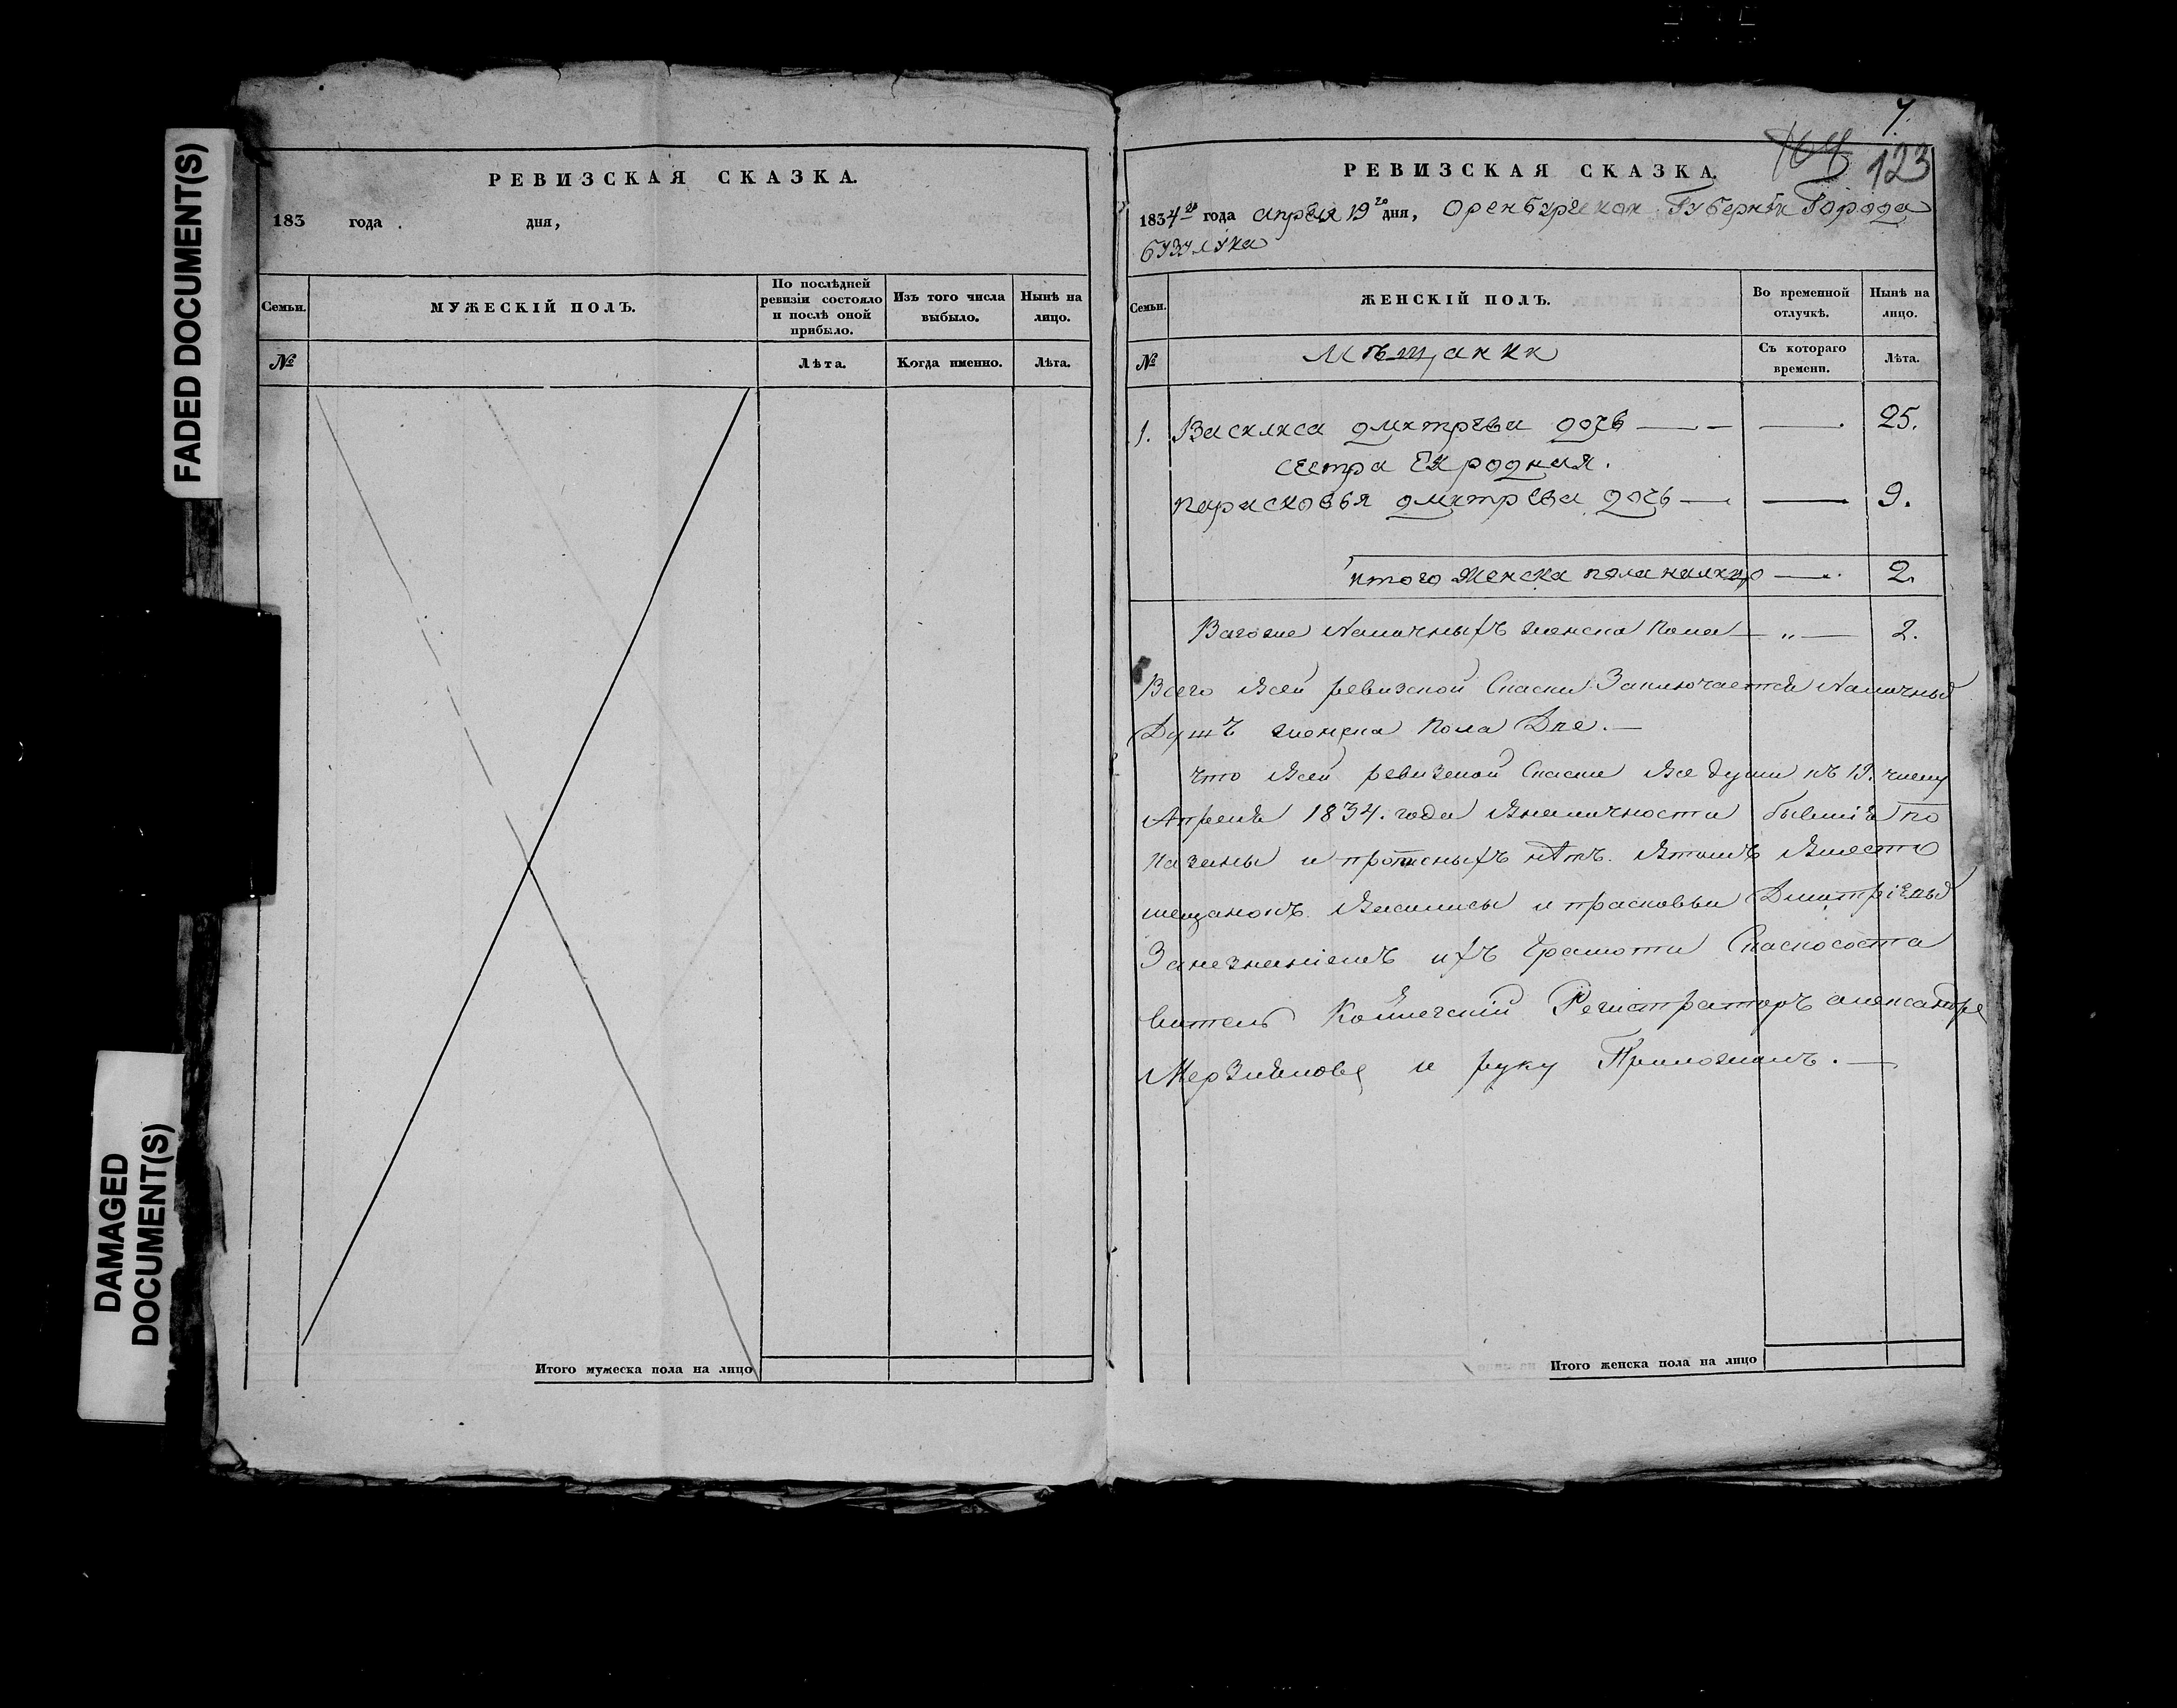 FADED DOCUMENT(S)
DAMAGED
DOCUMENT(S)
РЕВИЗСКАЯ СКАЗКА.
183 года . дня,
Семьи.
МУЖЕСКІЙ ПОЛЪ.
По послѣдней
ревизіи состояло
и послѣ оной
прибыло.
Изъ того числа
выбыло.
Нынѣ на
лицо.
№
Лѣта.
Когда именно.
Лѣта.
Итого мужеска пола на лицо
7.
164 123
РЕВИЗСКАЯ СКАЗКА.
1834го года апреля 19го дня, Оренбургской Губерніи Города
бузулука
Семьи.
ЖЕНСКІЙ ПОЛЪ.
Во временной
отлучкѣ.
Нынѣ на
лицо.
№
Мѣщанки
Съ котораго
времени.
Лѣта.
1. Василиса дмитрева дочь — — — 25.
сестра Ей родная.
парасковья дмитрева дочь — — 9.
итого женска пола налицо — 2.
Вагоже Наличныхъ женска пола — „ — 2.
Всего Всей ревизской Скаски Заключается Наличныхъ
Душъ женска Пола Две. —
что Всей ревизской Скаске Все души къ 19. числу
Апреля 1834. года Вналичности бывшіе по
казаны и прописныхъ нѣтъ. Втомъ Вместо
мещанокъ Василисы и прасковьи Дмитріевыхъ
Занезнаніемъ ихъ Грамоти Скаскососта
витель Коллегскій Регистраторъ александре
и руку Приложилъ. —
Итого женска пола на лицо